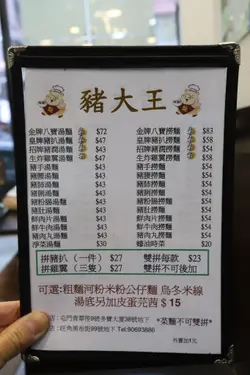 豬大王
金牌八寶湯麵 $72 金牌八寶撈麵 $83
皇牌豬扒湯麵 $43 皇牌豬扒撈麵 $58
招牌豬潤湯麵 $43 招牌豬潤撈麵 $54
生炸雞翼湯麵 $43 生炸雞翼撈麵 $58
豬手湯麵 $43 豬手撈麵 $54
豬腰湯麵 $43 豬腰撈麵 $54
$43 $54
$43 $54
豬肚湯麵 $43 豬肚撈麵 $54
鮮肉片湯麵 $43 鮮肉片撈麵 $54
鮮牛肉湯麵 $43 鮮牛肉撈麵 $54
豬肉丸湯麵 $43 豬肉丸撈麵 $54
淨菜湯麵 $30 蠔油時菜 $20
拼豬扒（一件） $27 雙拼每款 $23
拼雞翼（三隻） $27 雙拼不可後加
可選:粗麵河粉米粉公仔麵 烏冬米線
湯底另加皮蛋芫茜 $15
*菜麵不可雙拼*
外賣加1元